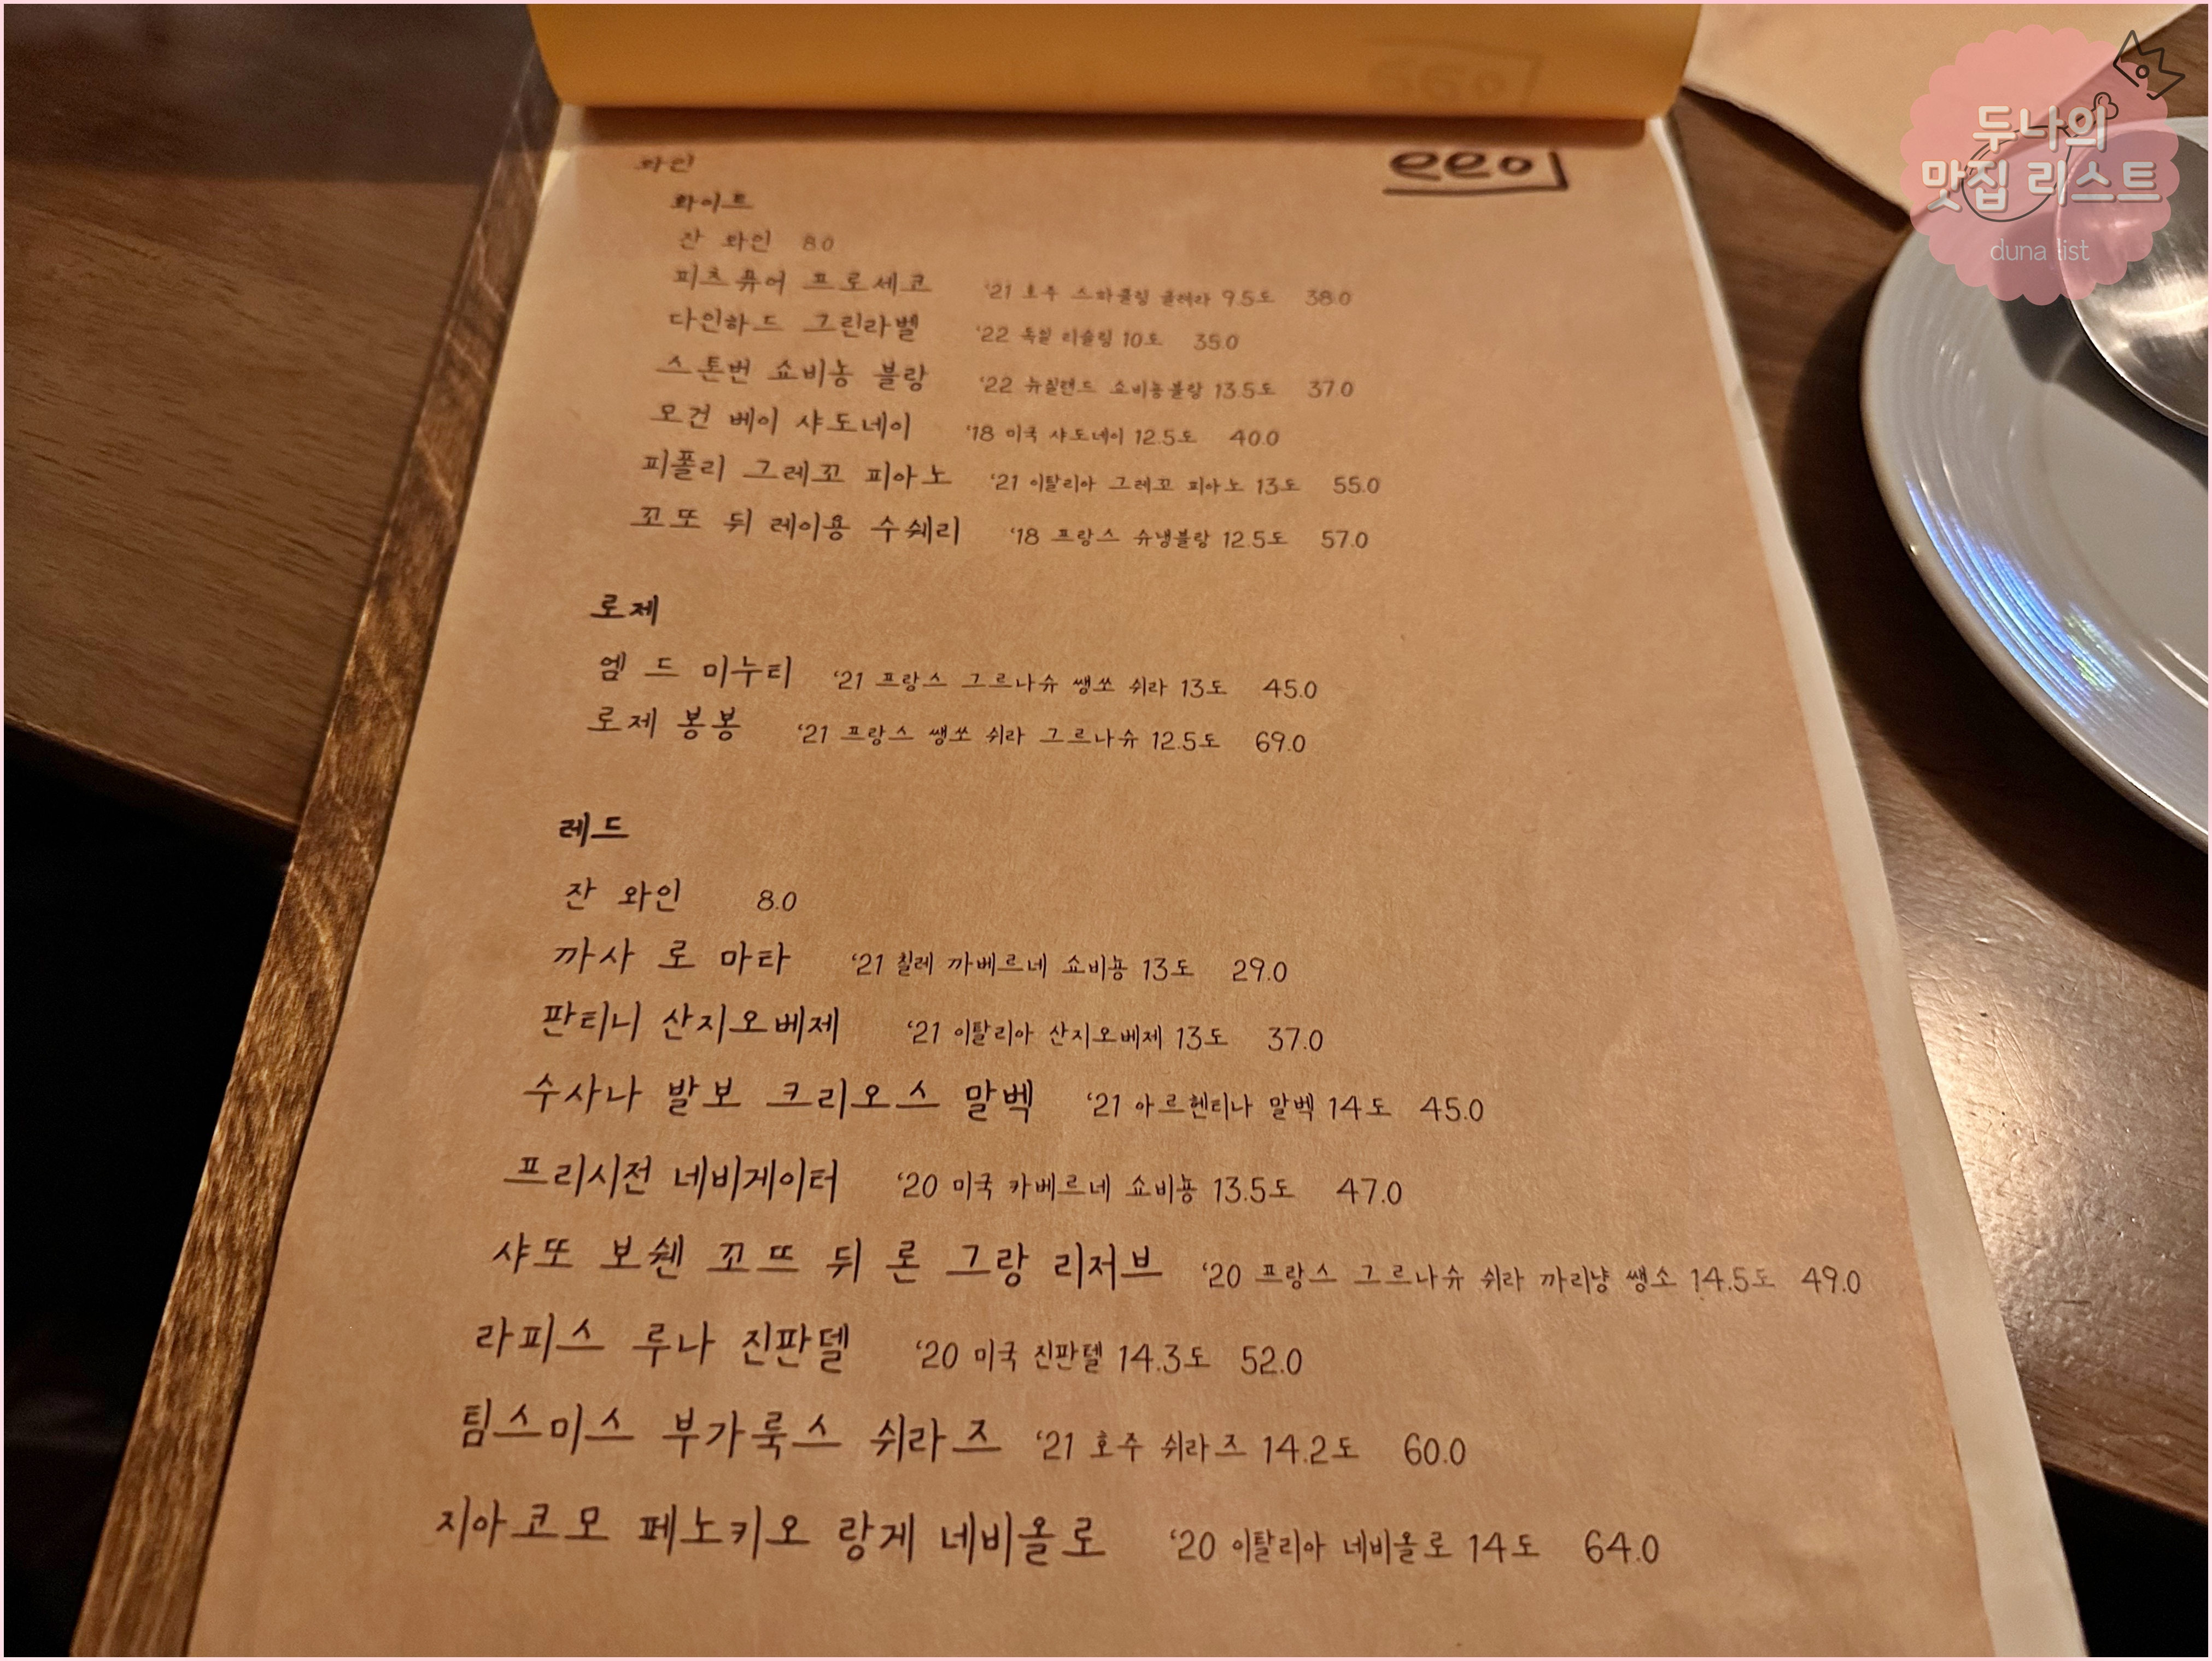 와인
화이트
잔 와인 8.0
피츠퓨어 프로세코 '21 호주 스파클링 글레라 9.5도 38.0
다인하드 그린라벨 '22 독일 리슬링 10도 35.0
스톤번 쇼비뇽 블랑 '22 뉴질랜드 쇼비뇽블랑 13.5도 37.0
모건 베이 샤도네이 '18 미국 샤도네이 12.5도 40.0
피폴리 그레꼬 피아노 '21 이탈리아 그레꼬 피아노 13도 55.0
꼬또 뒤 레이용 수쉐리 '18 프랑스 슈냉블랑 12.5도 57.0
로제
엠 드 미누티 '21 프랑스 그르나슈 쌩쏘 쉬라 13도 45.0
로제 봉봉 '21 프랑스 쌩쏘 쉬라 그르나슈 12.5도 69.0
레드
잔 와인 8.0
까사 로 마타 '21 칠레 까베르네 쇼비뇽 13도 29.0
판티니 산지오베제 '21 이탈리아 산지오베제 13도 37.0
수사나 발보 크리오스 말벡 '21 아르헨티나 말벡 14도 45.0
프리시전 네비게이터 '20 미국 카베르네 쇼비뇽 13.5도 47.0
샤또 보쉔 꼬뜨 뒤 론 그랑 리저브 '20 프랑스 그르나슈 쉬라 까리냥 쌩소 14.5도 49.0
라피스 루나 진판델 '20 미국 진판텔 14.3도 52.0
팀스미스 부가룩스 쉬라즈 '21 호주 쉬라즈 14.2도 60.0
지아코모 페노키오 랑게 네비올로 '20 이탈리아 네비올로 14도 64.0
두나의
맛집 리스트
duna list